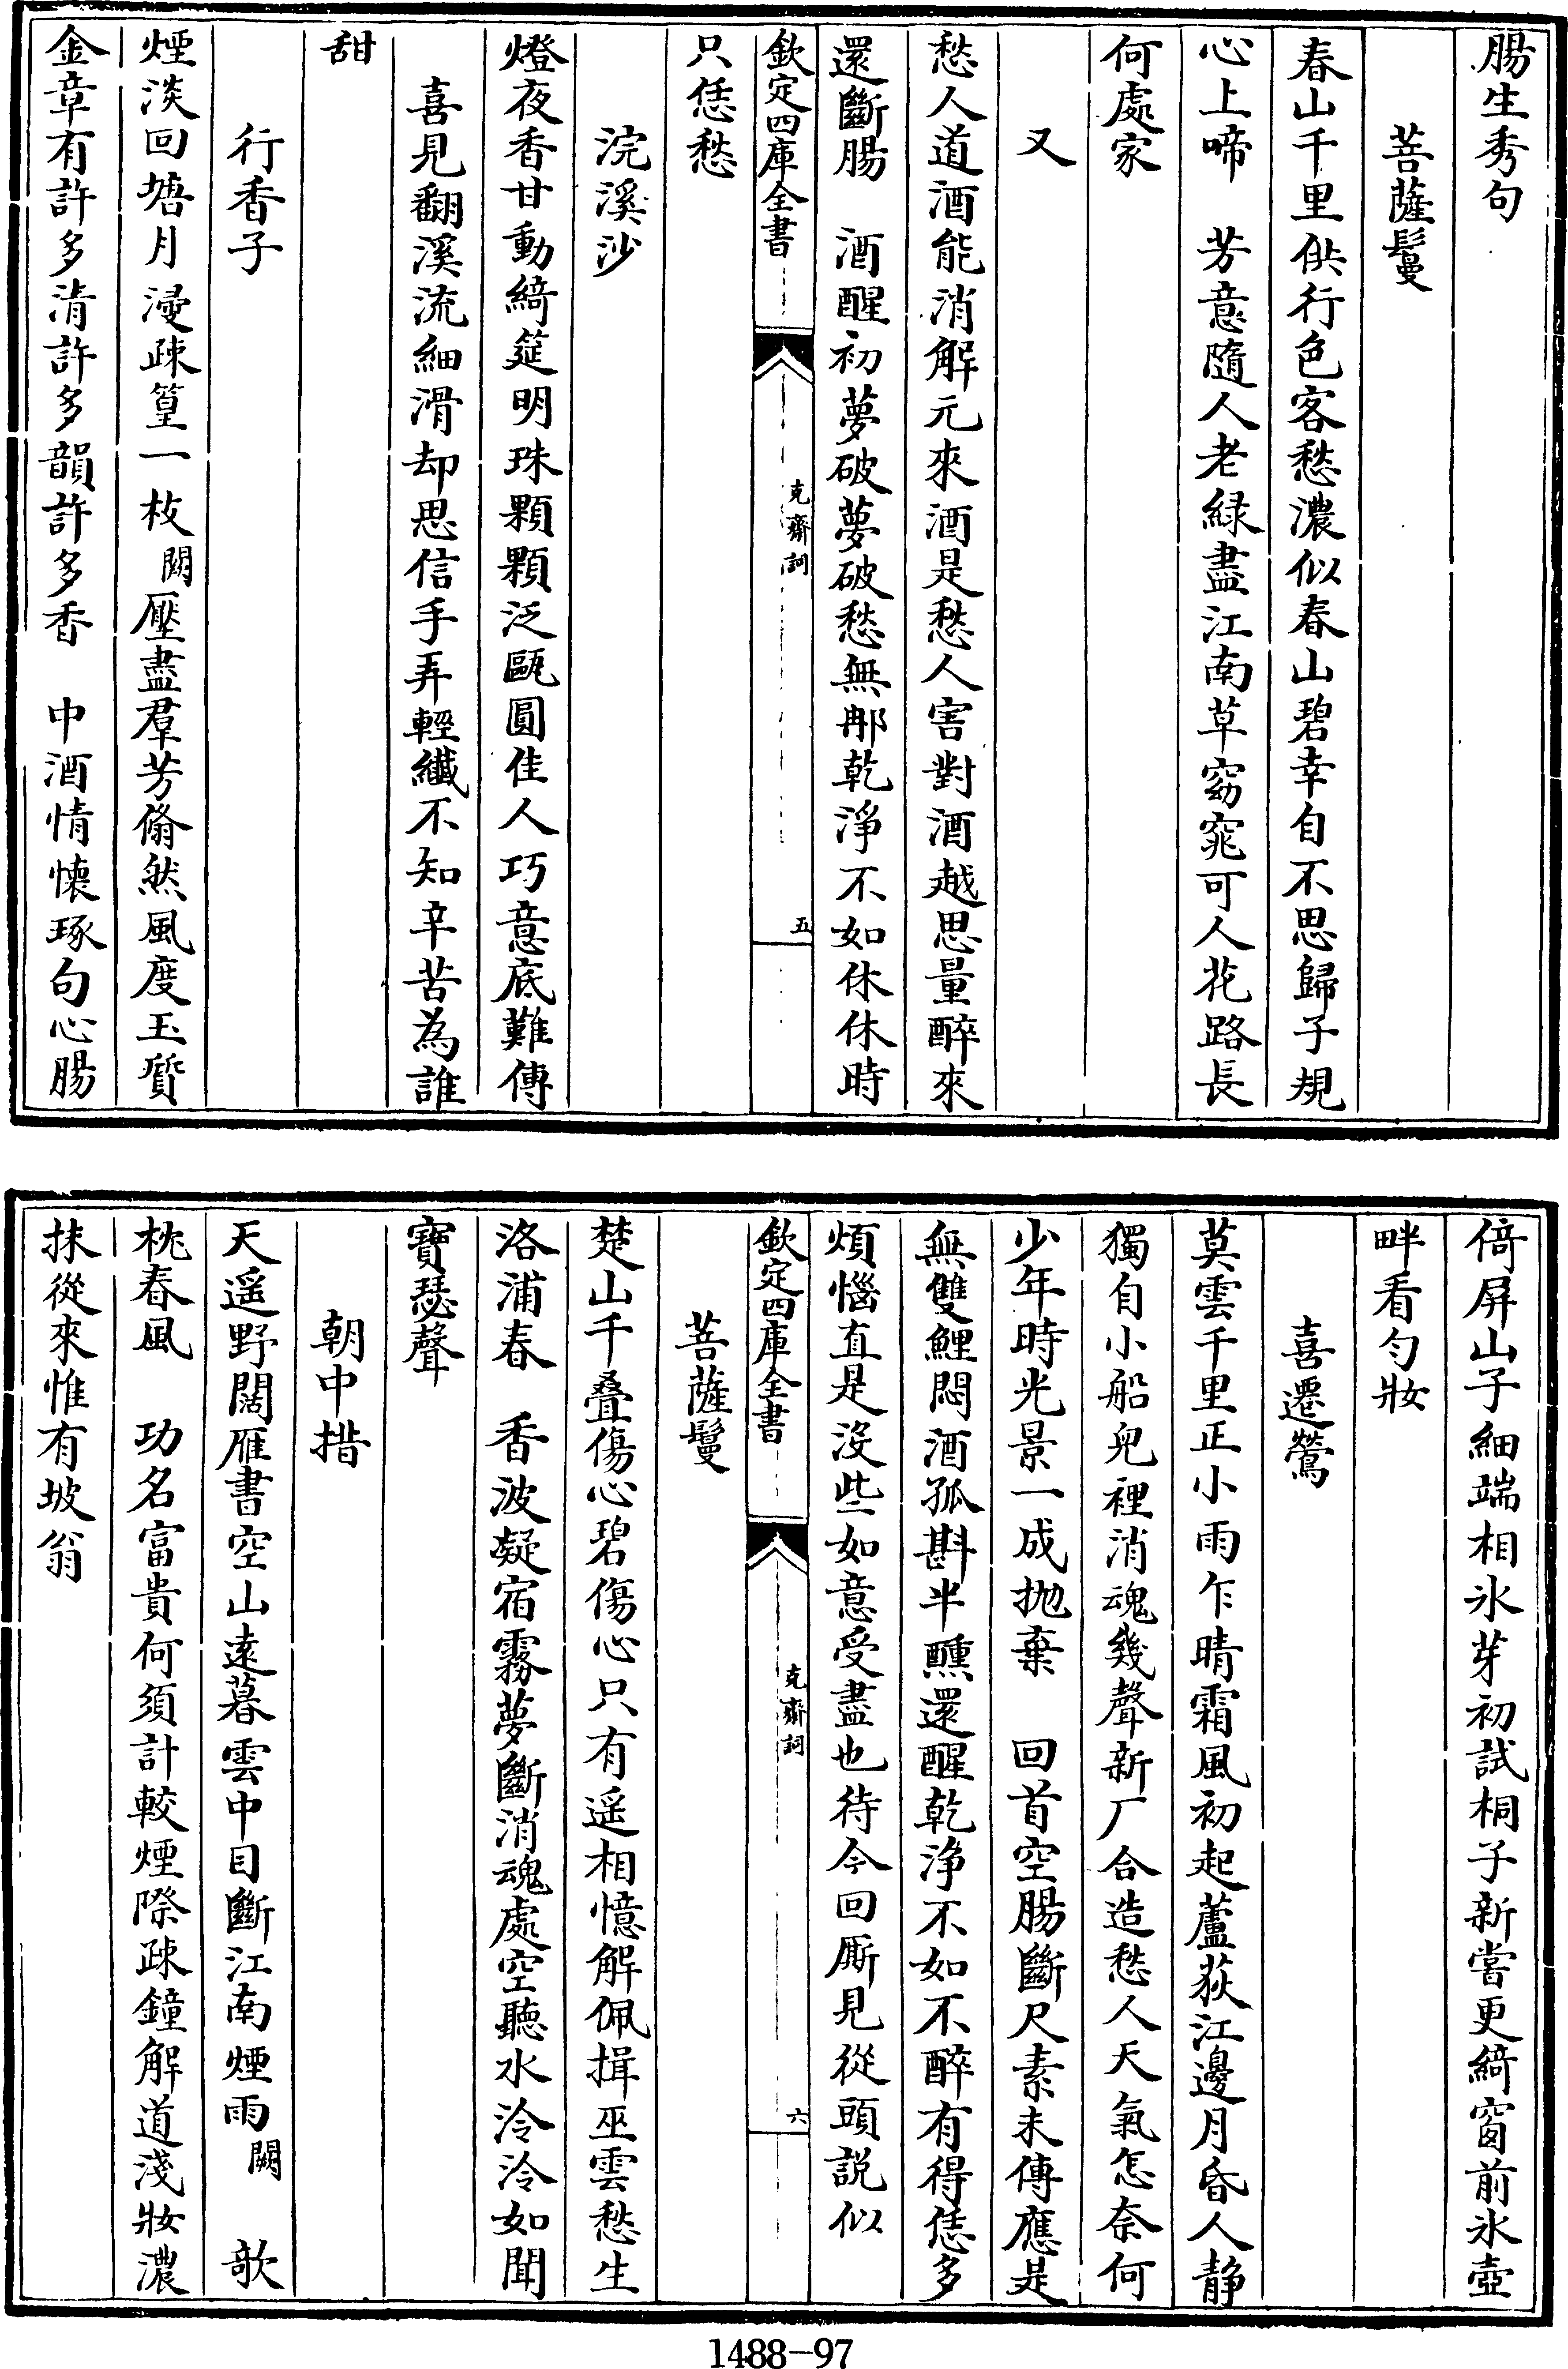 腸生秀句
菩薩鬘
春山千里供行色客愁濃似春山碧幸自不思歸子規
心上啼　芳意隨人老綠盡江南草窈窕可人花路長
何處家
又
愁人道酒能消解元來酒是愁人害對酒越思量醉來
還斷腸　酒醒初夢破夢破愁無那乾淨不如休休時
欽定四庫全書　克齋詞　五
只恁愁
浣溪沙
燈夜香甘動綺筵明珠顆顆泛甌圓佳人巧意底難傳
喜見翻溪流細滑却思信手弄輕纖不知辛苦為誰
甜
行香子
煙淡回塘月浸疎篁一枝闕壓盡羣芳翛然風度玉質
金章有許多清許多韻許多香　中酒情懷琢句心腸
倚屏山子細端相氷芽初試桐子新嘗更綺窗前氷壺
畔看勻妝
喜遷鶯
莫雲千里正小雨乍晴霜風初起蘆荻江邊月昏人静
獨自小船兒裡消魂幾聲新厂合造愁人天氣怎奈何
少年時光景一成抛棄　回首空腸斷尺素未傳應是
無雙鯉悶酒孤斟半醺還醒乾浄不如不醉有得恁多
煩惱直是沒些如意受盡也待今回厮見從頭説似
欽定四庫全書　克齋詞　六
菩薩鬘
楚山千叠傷心碧傷心只有遥相憶解佩揖巫雲愁生
洛浦春　香波凝宿霧夢斷消魂處空聽水泠泠如聞
寶瑟聲
朝中措
天遥野闊雁書空山遠暮雲中目斷江南煙雨闕　歌
枕春風　功名富貴何須計較煙際疎鐘解道淺妝濃
抹從來惟有坡翁
1488-97